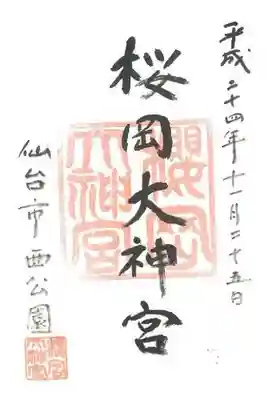 平成二十四年十一月二十五日
桜岡大神宮
櫻岡
大神宮
仙台市西公園